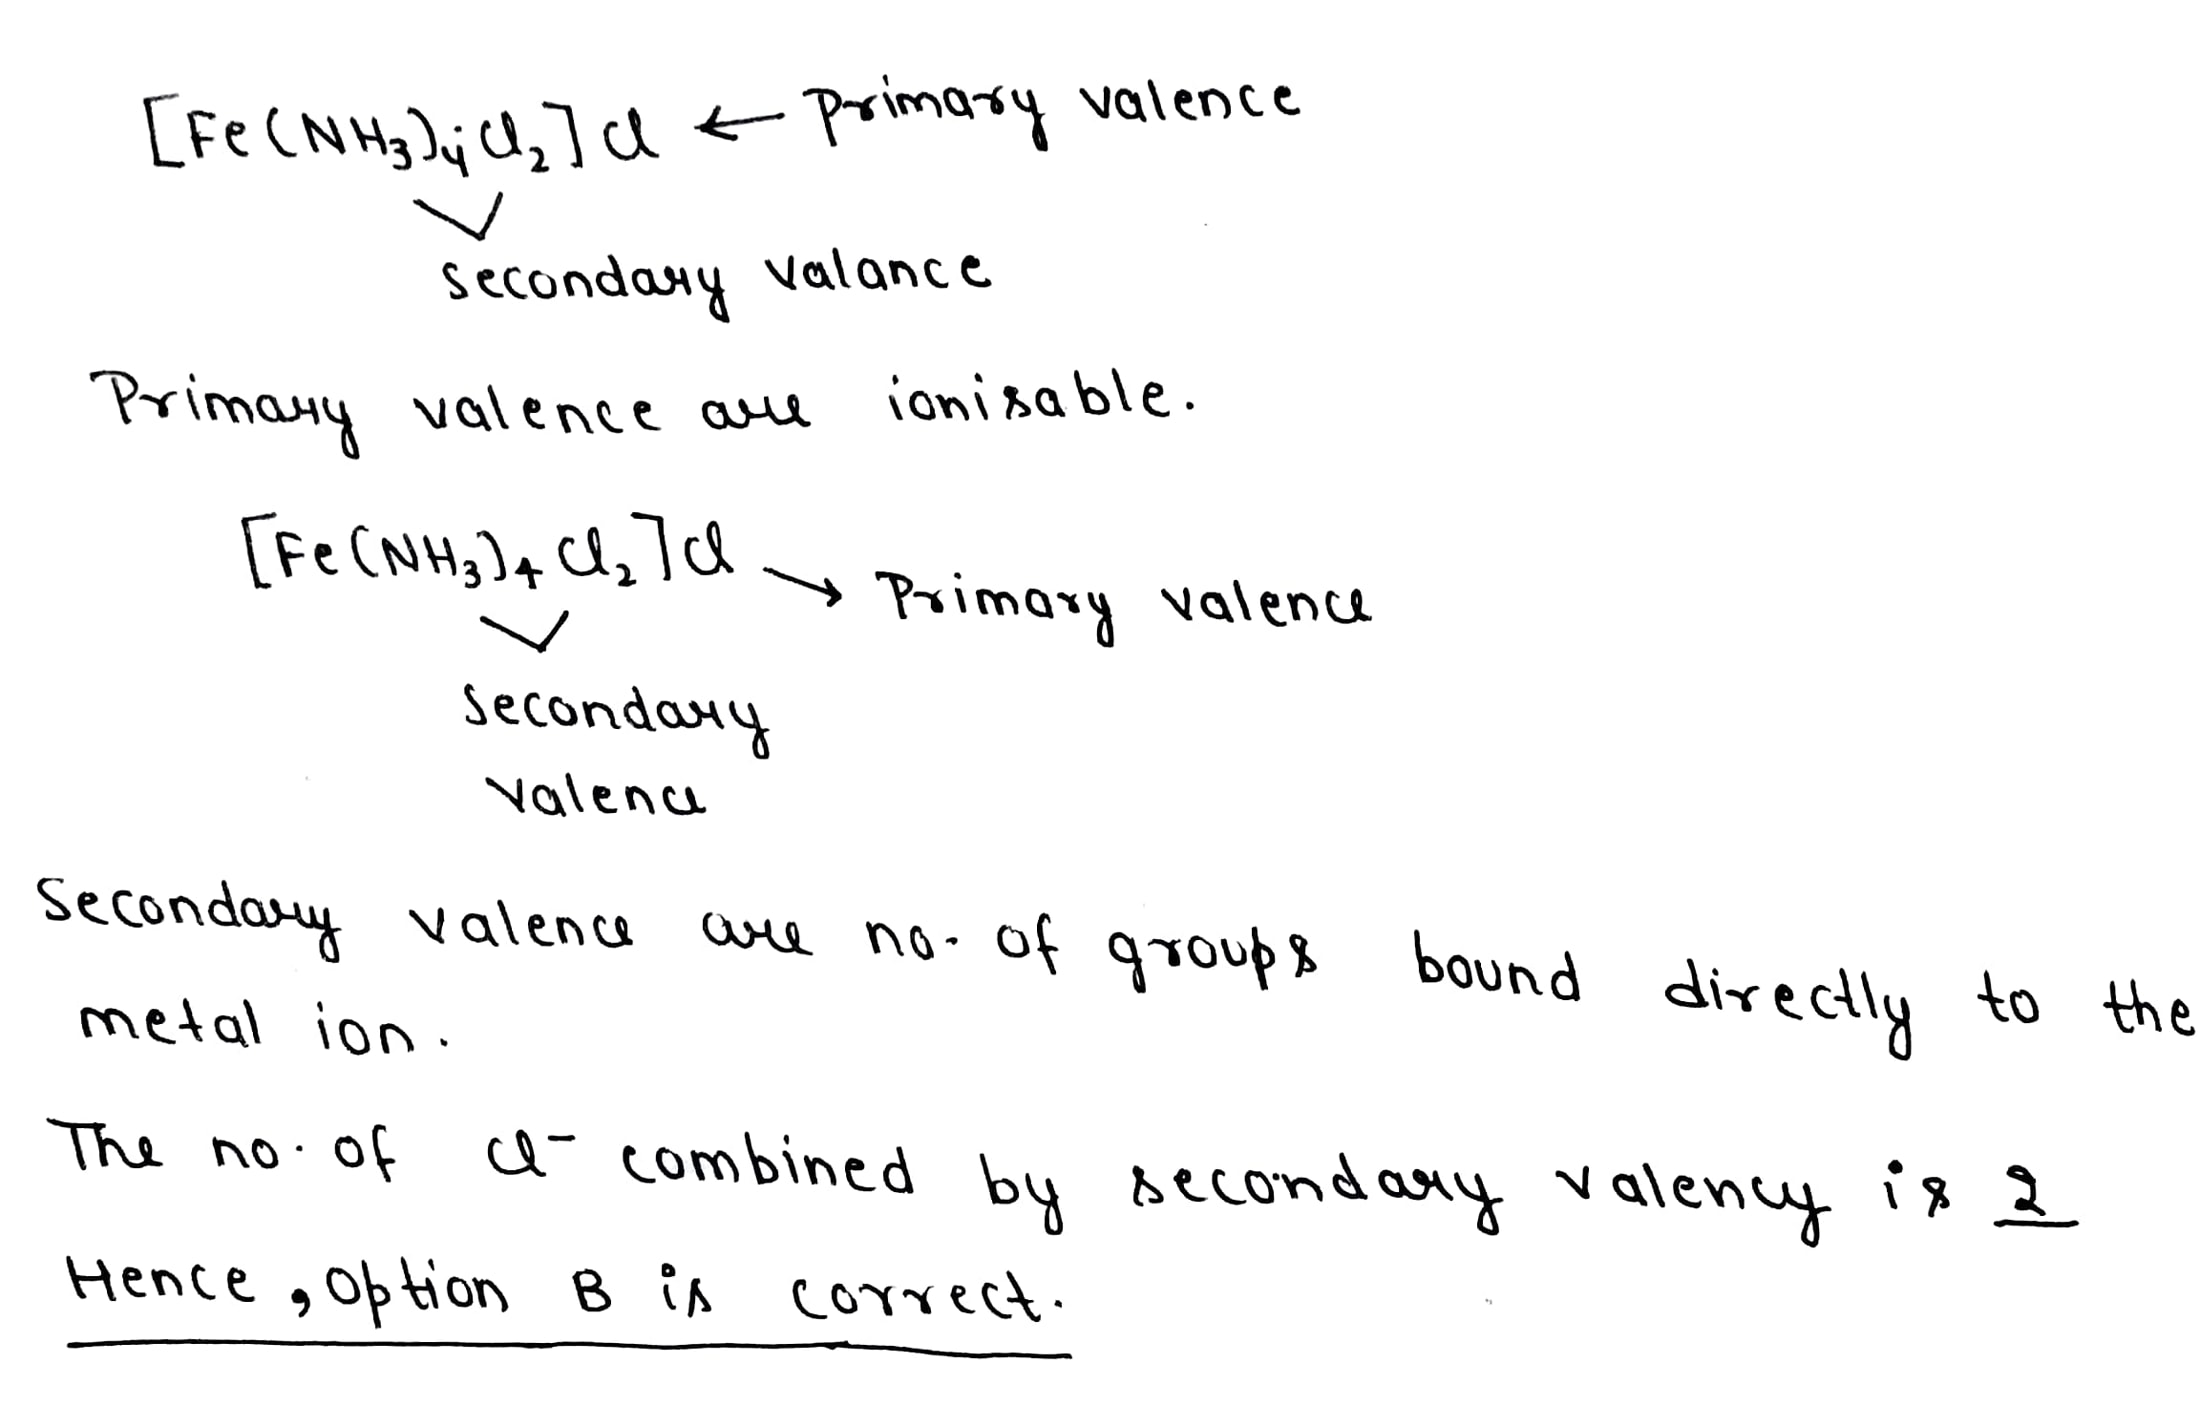 [Fe(NH₃)₄Cl₂]Cl ← Primary valence
secondary valance
Primary valence are ionisable.
[Fe(NH₃)₄Cl₂]Cl → Primary valence
Secondary
valence
Secondary valence are no. of groups bound directly to the
metal ion.
The no. of Cl⁻ combined by secondary valency is 2
Hence, option B is correct.